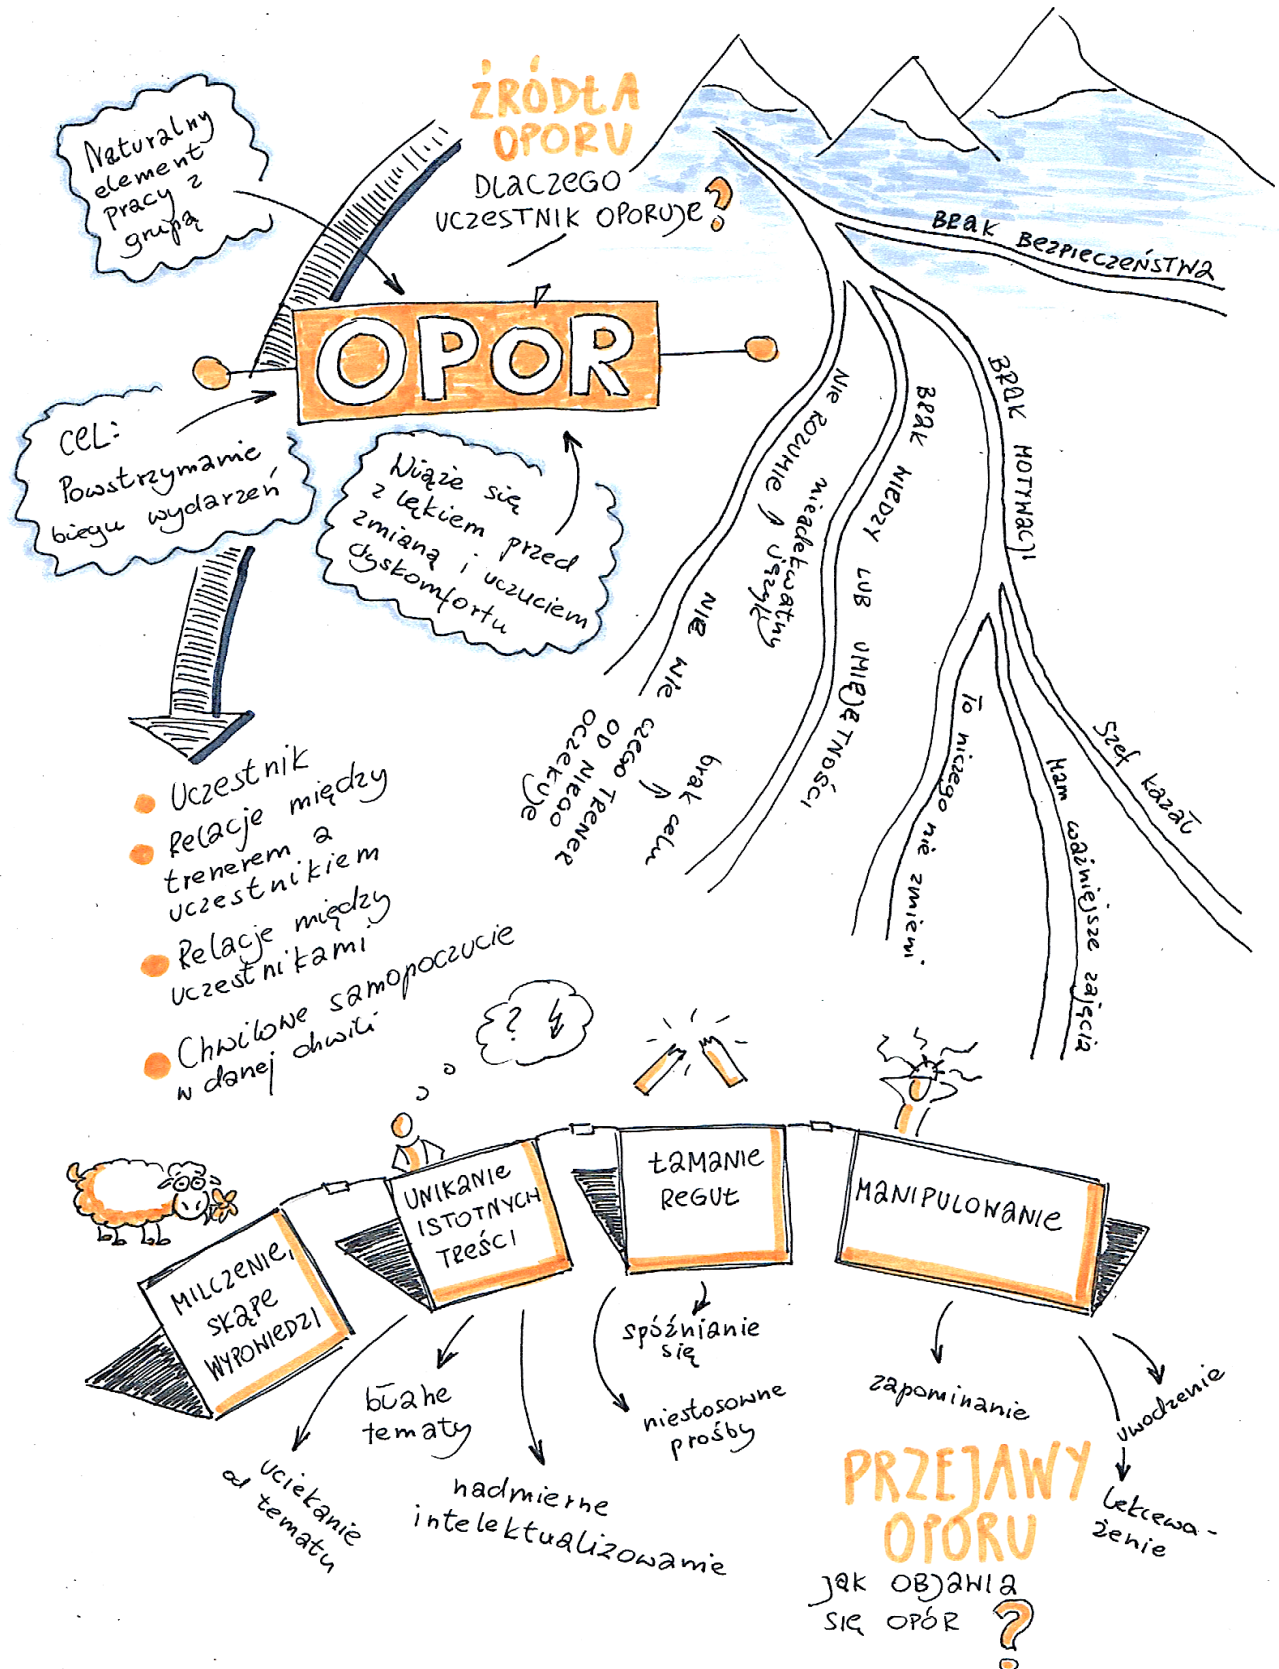 Naturalny
element
pracy z
grupą
ŹRÓDŁA
OPORU
DLACZEGO
UCZESTNIK OPORUJE?
OPOR
CEL:
Powstrzymanie
biegu wydarzeń
Wiąże się
z lękiem przed
zmianą i uczuciem
dyskomfortu
BRAK BEZPIECZEŃSTWA
BRAK MOTYWACJI
BRAK WIEDZY LUB UMIEJĘTNOŚCI
NIE ROZUMIE
nieadekwatny
język
NIE WIE
CZEGO TRENER
OD NIEGO
OCZEKUJE
brak celu
To niczego nie zmieni
Mam ważniejsze zajęcia
Szef kazał
Uczestnik
Relacje między
trenerem a
uczestnikiem
Relacje między
uczestnikami
Chwilowe samopoczucie
w danej chwili
?
MILCZENIE,
SKĄPE
WYPOWIEDZI
UNIKANIE
ISTOTNYCH
TREŚCI
ŁAMANIE
REGUŁ
MANIPULOWANIE
uciekanie
od tematu
błahe
tematy
nadmierne
intelektualizowanie
spóźnianie
się
niestosowne
prośby
zapominanie
uwodzenie
lekcewa-
żenie
PRZEJAWY
OPORU
JAK OBJAWIA
SIĘ OPÓR ?